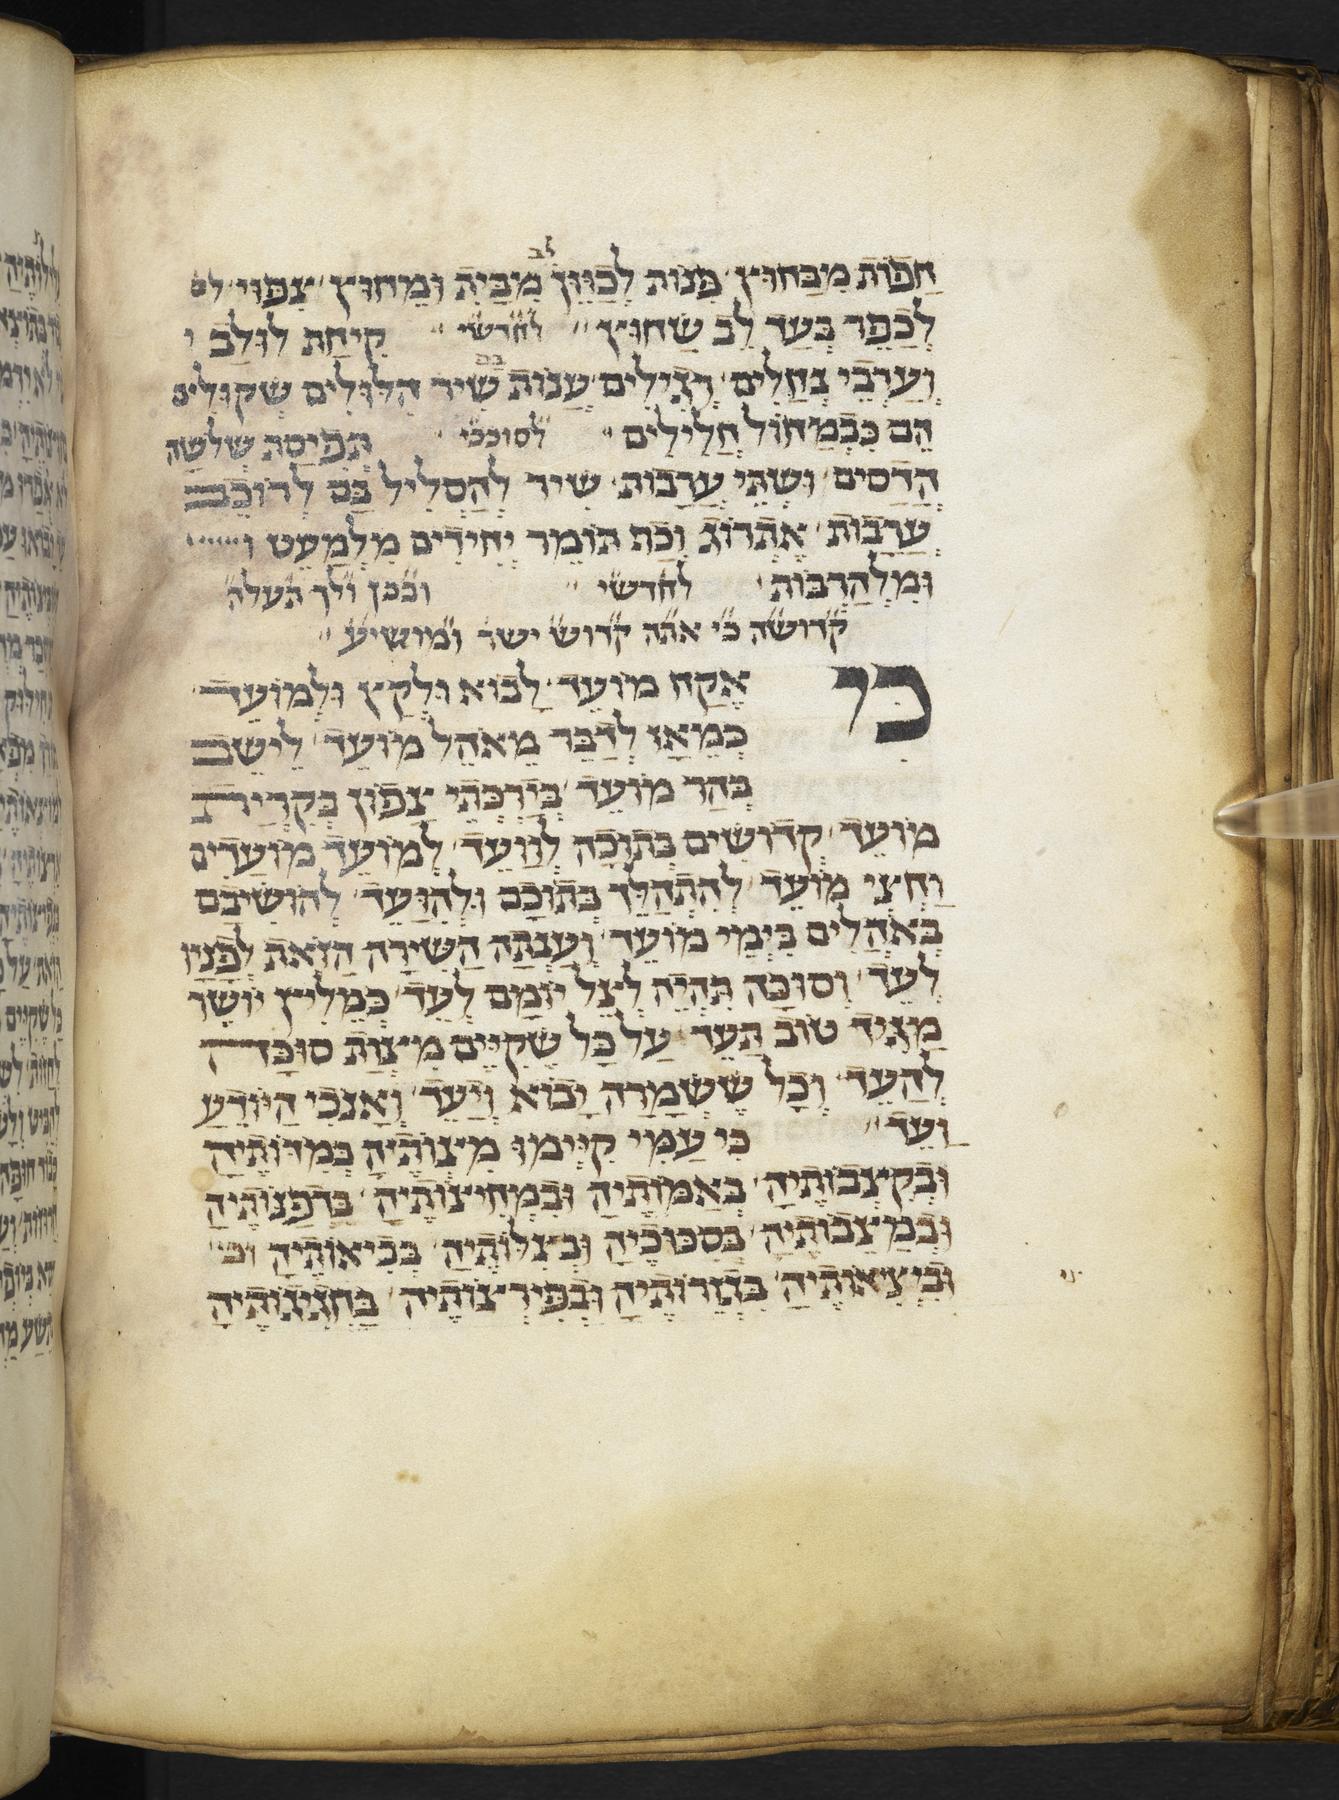 חֲפוֹת מִבַּחוּץ׳ פְּנוֹת לְכַוֵּין לב מִבַּיִת וּמִחוּץ׳ צָפוּי׳
לְכַפֵּר בְּעַד לֵב שָׁחוּץ׳׳ לחדשי׳׳ קִיחַת לוּלָב
וְעַרְבֵי נְחָלִים׳ רְגִילִים׳ עֲנוֹת בם שִׁיר הִלּוּלִים שְׁקוּלִים
הֵם כְּבִמְחוֹל חֲלִילִים׳׳ לסוככי׳׳ תְּפִיסַת שְׁלֹשָׁה
הֲדַסִּים׳ וּשְׁתֵּי עֲרָבוֹת׳ שִׁיר לְהַסְלִיל בָּם לְרוֹכֵב
עֲרָבוֹת׳ אֶתְרוֹג וְכַת תּוֹמֶר יְחִידִים מִלְּמַעֵט
וּמִלְּהַרְבּוֹת׳ לחדשי׳׳ ובכן ולך תעלה
קדושה כי אתה קדוש ישר׳ ומושיע׳׳
כִּי אֶקַּח מוֹעֵד׳ לָבוֹא וּלְקֵץ וּלְמוֹעֵד׳
כְּמֵאָז לְדַבֵּר מֵאֹהֶל מוֹעֵד׳ לֵישֵׁב
בְּהַר מוֹעֵד׳ בְּיַרְכְּתֵי צָפוֹן בְּקִרְיַת
מוֹעֵד׳ קְדוֹשִׁים בְּתוֹכָהּ לְוַעֵד׳ לְמוֹעֵד מוֹעֲדִים
וַחֲצִי מוֹעֵד׳ לְהִתְהַלֵּךְ בְּתוֹכָם וּלְהִוָּעֵד׳ לְהוֹשִׁיבָם
בְּאֹהָלִים כִּימֵי מוֹעֵד׳ וְעָנְתָה הַשִּׁירָה הַזֹּאת לְפָנָיו
לְעֵד׳ וְסוּכָּה תִּהְיֶה לְצֵל יוֹמָם לָעַד׳ כְּמֵלִיץ יוֹשֶׁר
מַגִּיד טוֹב תָּעֵד׳ עַל כָּל שֶׁקִּיֵּים מִצְוַת סוּכָּה
לְהָעֵד׳ וְכָל שֶׁשְּׁמָרָהּ יָבוֹא וְיָעֵד׳ וְאָנֹכִי הַיּוֹדֵעַ
וָעֵד׳׳ כִּי עַמִּי קִיְּימוּ מִצְוֹתֶיהָ בְּמִדּוֹתֶיהָ
וּבְקִצְבוֹתֶיהָ׳ בְּאַמּוֹתֶיהָ וּבִמְחִיצוֹתֶיהָ׳ בְּדַפְנוֹתֶיהָ
וּבְמַצָּבוֹתֶיהָ׳ בְּסִכּוּכֶיהָ וּבְצִלּוֹתֶיהָ׳ בְּבִיאוֹתֶיהָ
וּבִיצִיאוֹתֶיהָ׳ בְּגֵדְרוֹתֶיהָ וּבְפִירְצוֹתֶיהָ׳ בַּחֲגִיגוֹתֶיהָ